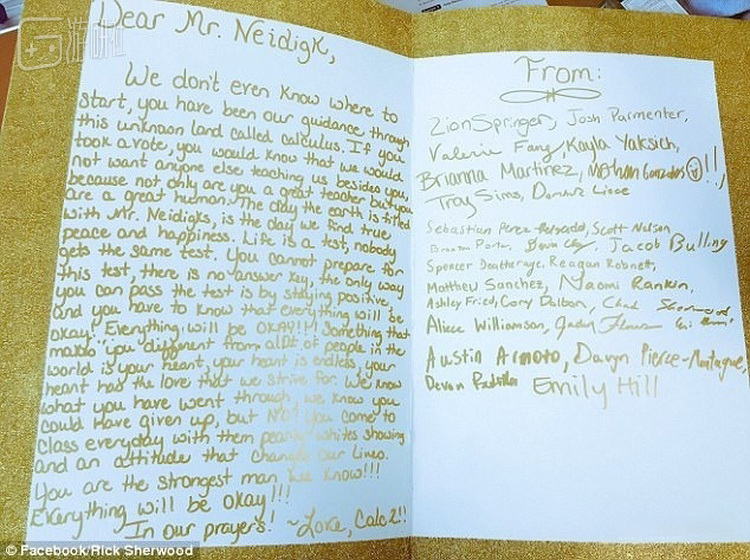 游研社
Dear Mr. Neidigk,
We don't even know where to
start, you have been our guidance through
this unknown land called calculus. If you
took a vote, you would know that we would
not want anyone else teaching us besides you,
because not only are you a great teacher but you
are a great human. The day the earth is filled
with Mr. Neidigks, is the day we find true
peace and happiness. Life is a test, nobody
gets the same test. You cannot prepare for
this test, there is no answer key, the only way
you can pass the test is by staying positive,
and you have to know that everything will be
okay! Everything will be OKAY!!! Something that
you different from of people in the
world is your heart, your heart is endless, your
heart has the love that we strive for. We know
what you have went through, we know you
could have given up, but NO! you come to
class everyday with them pearly whites showing
and an attitude that changes our lives.
You are the strongest man we know!!!
Everything will be okay!!!
In our prayers! ~Love, Calc 2!!
From:
Zion Springer, Josh Parmenter,
Valerie Fang, Kayla Yaksich,
Brianna Martinez, Nathan Gonzales !!,
Troy Sims,
Sebastian Perez Scott Nelson
Braxton Porter, Jacob Bulling
Spencer Deatherage, Reagan Robnett,
Matthew Sanchez, Naomi Rankin,
Ashley Fried, Cory Dalbon, Chad Sherwood
Alice Williamson,
Austin Armoto, Davyn Pierce-Montague,
Devon Padilla Emily Hill
© Facebook/Rick Sherwood